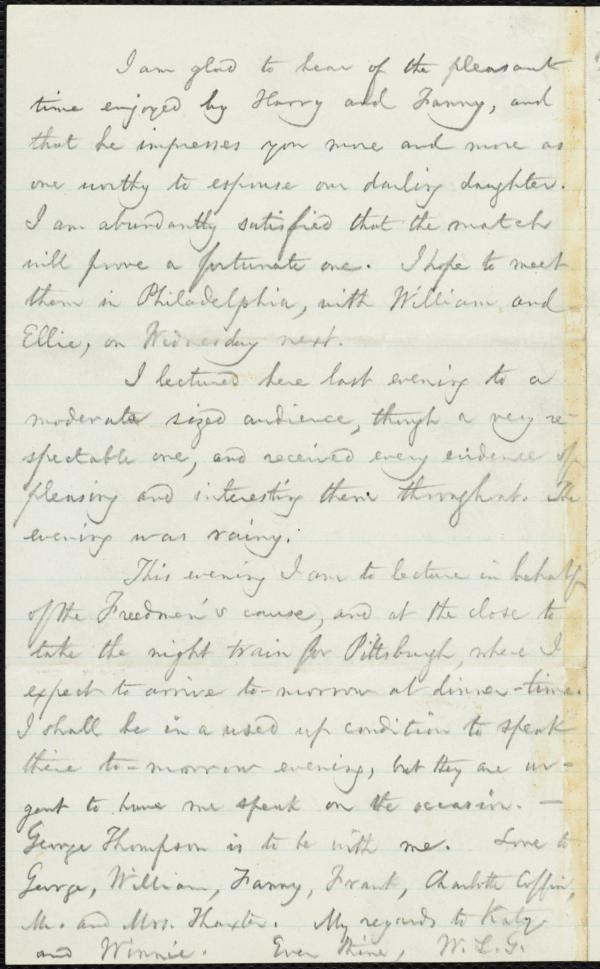 I am glad to hear of the pleasant
time enjoyed by Harry and Fanny, and
that he impresses you more and more as
one worthy to espouse our darling daughter.
I am abundantly satisfied that the match
will prove a fortunate one. I hope to meet
them in Philadelphia, with William and
Ellie, on Wednesday next.
I lectured here last evening to a
moderate sized audience, though a very re-
spectable one, and received every evidence of
pleasing and interesting them throughout. The
evening was rainy.
This evening I am to lecture in behalf
of the Freedmen's cause, and at the close to
take the night train for Pittsburgh, where I
expect to arrive to-morrow at dinner-time.
I shall be in a used up condition to speak
there to-morrow evening, but they are ur-
gent to have me speak on the occasion. —
George Thompson is to be with me. Love to
George, William, Fanny, Frank, Charlotte Coffin,
Mr. and Mrs. Thaxter. My regards to Katy
and Winnie. Ever thine, W. L. G.